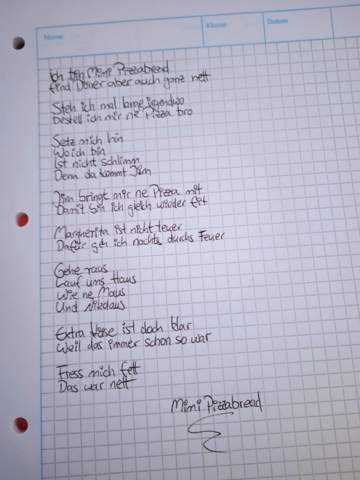 Name
Klasse
Datum
Ich bin Mimi Pizzabread
find Döner aber auch ganz nett
Steh ich mal lang irgendwo
bestell ich mir ne Pizza bro
Setz mich hin
Wo ich bin
Ist nicht schlimm
Denn da kommt Jim
Jim bringt mir ne Pizza mit
Damit bin ich gleich wieder fit
Margherita ist nicht teuer
Dafür geh ich nachts durchs Feuer
Gehe raus
Lauf ums Haus
Wie ne Maus
Und Nikolaus
Extra Käse ist doch klar
Weil das immer schon so war
Fress mich fett
Das war nett
Mimi Pizzabread